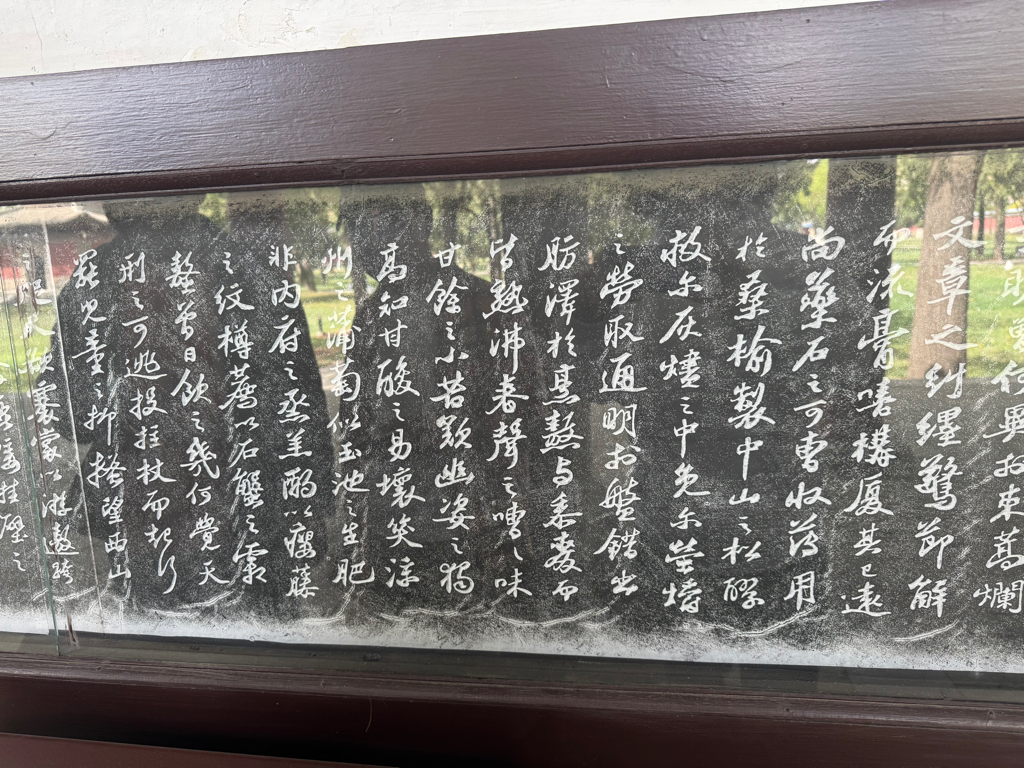 何異於束蒿爛
文章之糾纏驚節解
而流膏嘻構厦其已遠
尚藥石之可曹收薄用
於桑榆製中山之松醪
救尔灰燼之中免尔螢爝
之勞取通明於盤錯出
肪澤於烹熬与黍麥而
皆熟沸舂聲之嘈々味
甘餘之小苦歎幽姿之獨
高知甘酸之易壞笑涼
州之蒲萄似玉池之生肥
非内府之蒸羔酌以癭藤
之紋樽薦以石蟹之霜
螯曾日飲之幾何覺天
刑之可逃投拄杖而起行
罷兒童之抑搔望西山
之咫尺欲褰裳以游遨跨
挂壁之